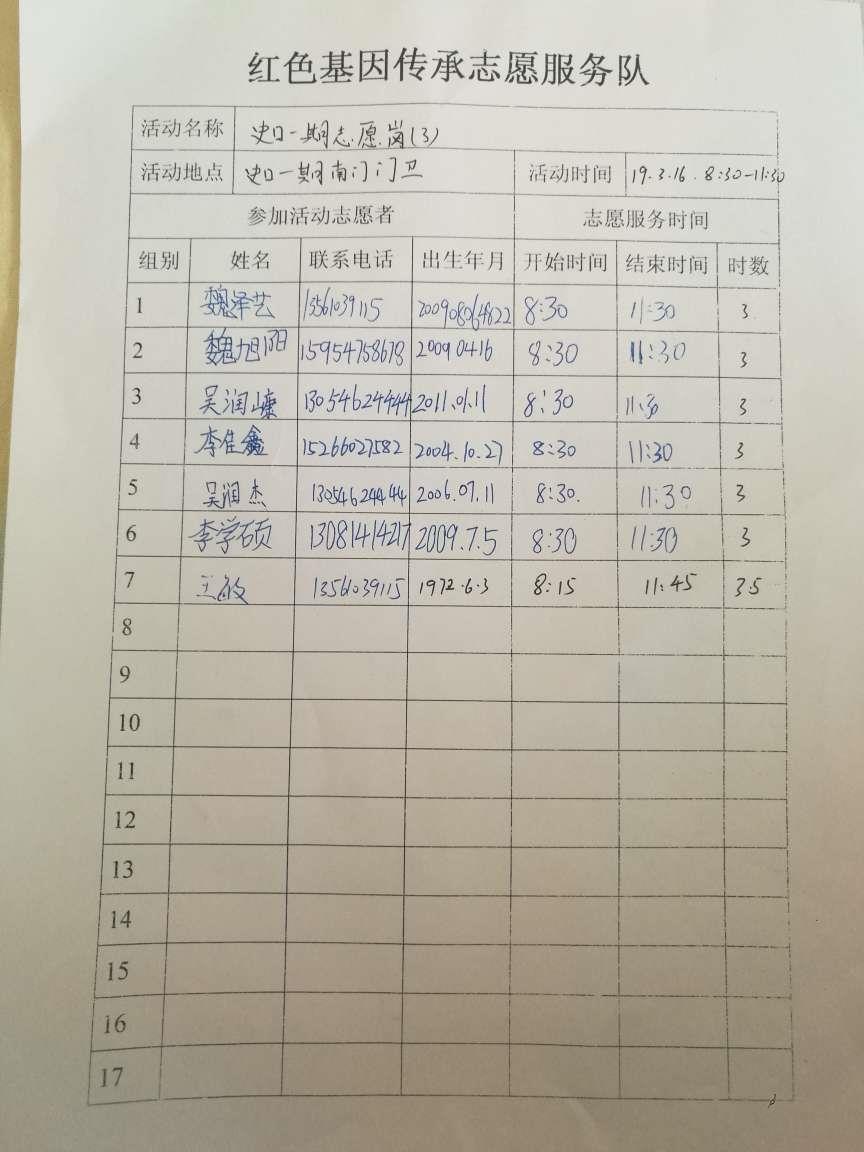 红色基因传承志愿服务队
活动名称 史口一期志愿岗(3)
活动地点 史口一期南门门卫 活动时间 19.3.16. 8:30-11:30
参加活动志愿者 志愿服务时间
组别 姓名 联系电话 出生年月 开始时间 结束时间 时数
1 魏泽艺 13561039115 200908064822 8:30 11:30 3
2 魏旭阳 15954758678 20090416 8:30 11:30 3
3 吴润 13054624444 2011.01.11 8:30 11:30 3
4 李佳鑫 15266027582 2004.10.27 8:30 11:30 3
5 吴润杰 13054624444 2006.07.11 8:30. 11:30 3
6 李学硕 13081414217 2009.7.5 8:30 11:30 3
7 王敏 13561039115 1972.6.3 8:15 11:45 3.5
8
9
10
11
12
13
14
15
16
17